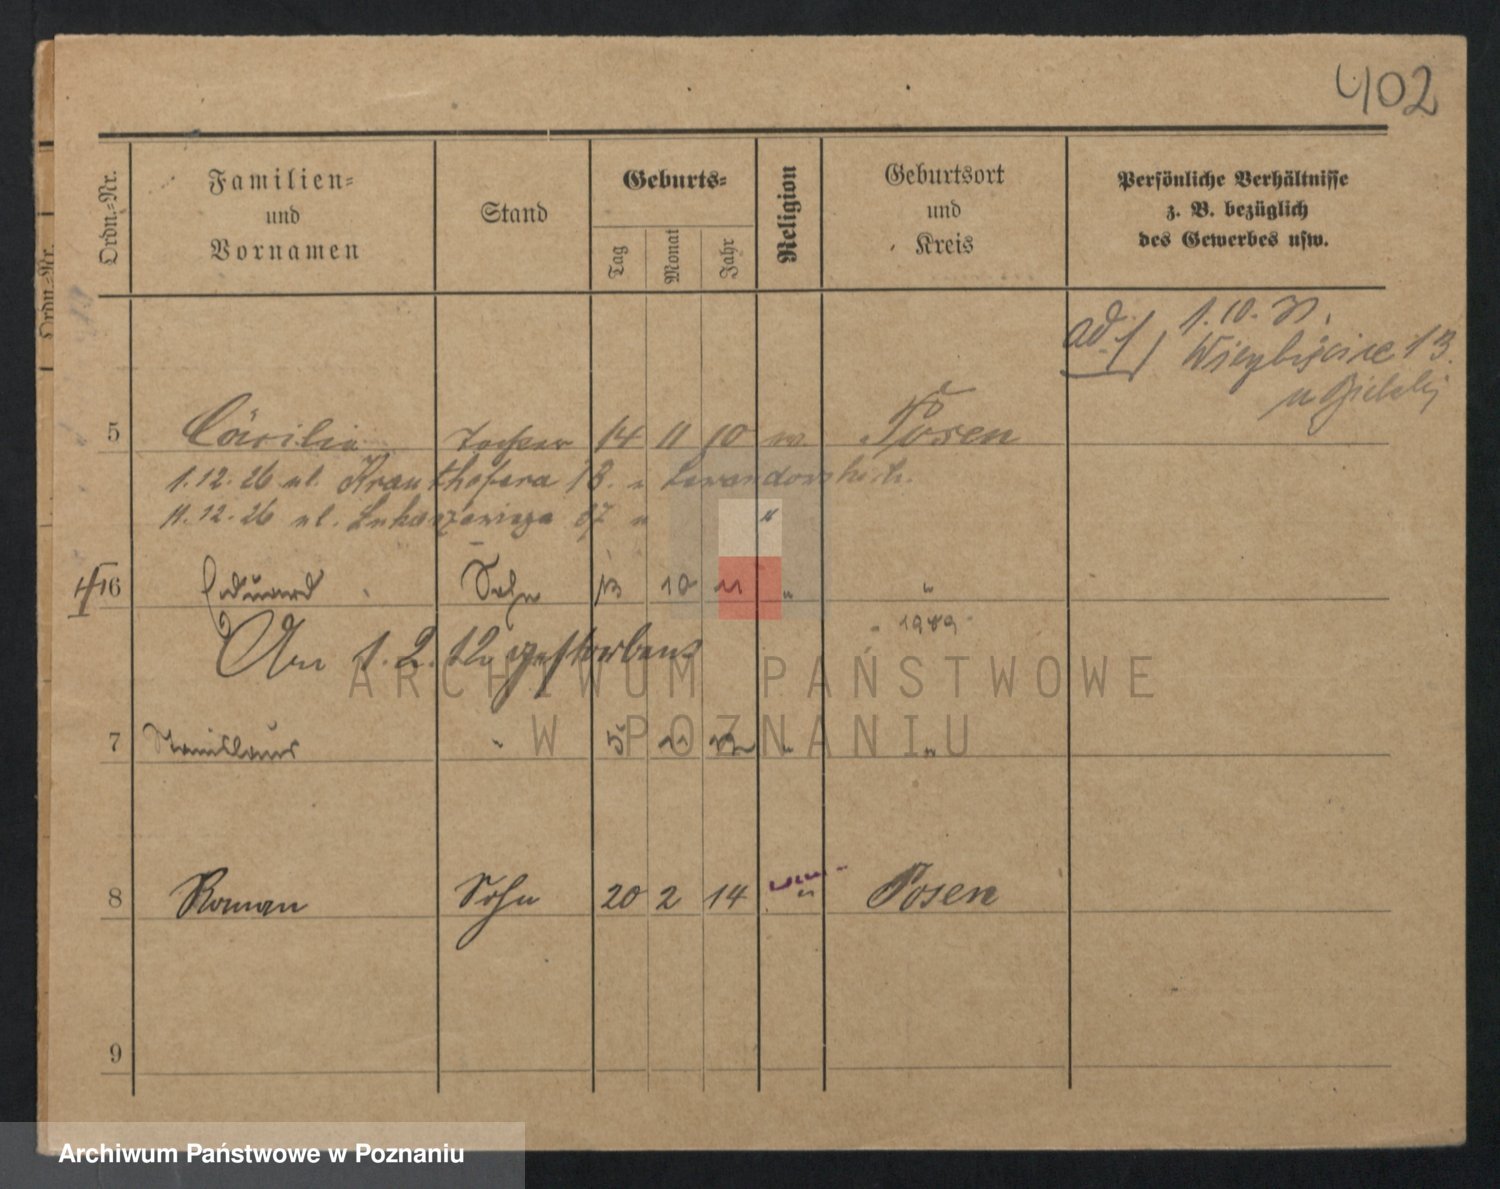 402
Ordn.=Nr.
Familien=
und
Vornamen
Stand
Geburts=
Tag
Monat
Jahr
Religion
Geburtsort
und
Kreis
Persönliche Verhältnisse
z. B. bezüglich
des Gewerbes usw.
Ordn.=Nr.
ad 1) 1. 10. 31.
13
5 Cäcilie Tochter 14 11 10 Posen
1.12.26 ul. Krauthofera 18. u Lewandowski
11.12.26 ul. Łukaszewicza 37 u "
6 Eduard Sohn 13 10 11 " "
Am 1. 2. 12 gestorben
7 Stanislaus " 5 "  "
8 Roman Sohn 20 2 14 " Posen
9
ARCHIWUM PAŃSTWOWE
W POZNANIU
Archiwum Państwowe w Poznaniu